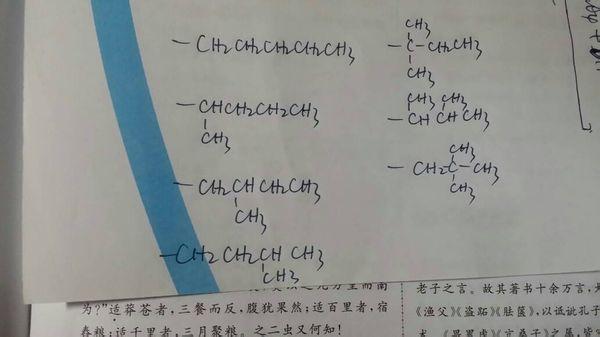 —CH2CH2CH2CH2CH3
—CHCH2CH2CH3
CH3
—CH2CHCH2CH3
CH3
—CH2CH2CHCH3
CH3
CH3
—C—CH2CH3
CH3
CH3 CH3
—CH CH CH3
CH3
—CH2-C-CH3
CH3
为?”适莽苍者,三餐而反,腹犹果然;适百里者,宿
舂粮;适千里者,三月聚粮。之二虫又何知!
老子之言。故其著书十余万言,
《渔父》《盗跖》《胠箧》,以诋訿孔子